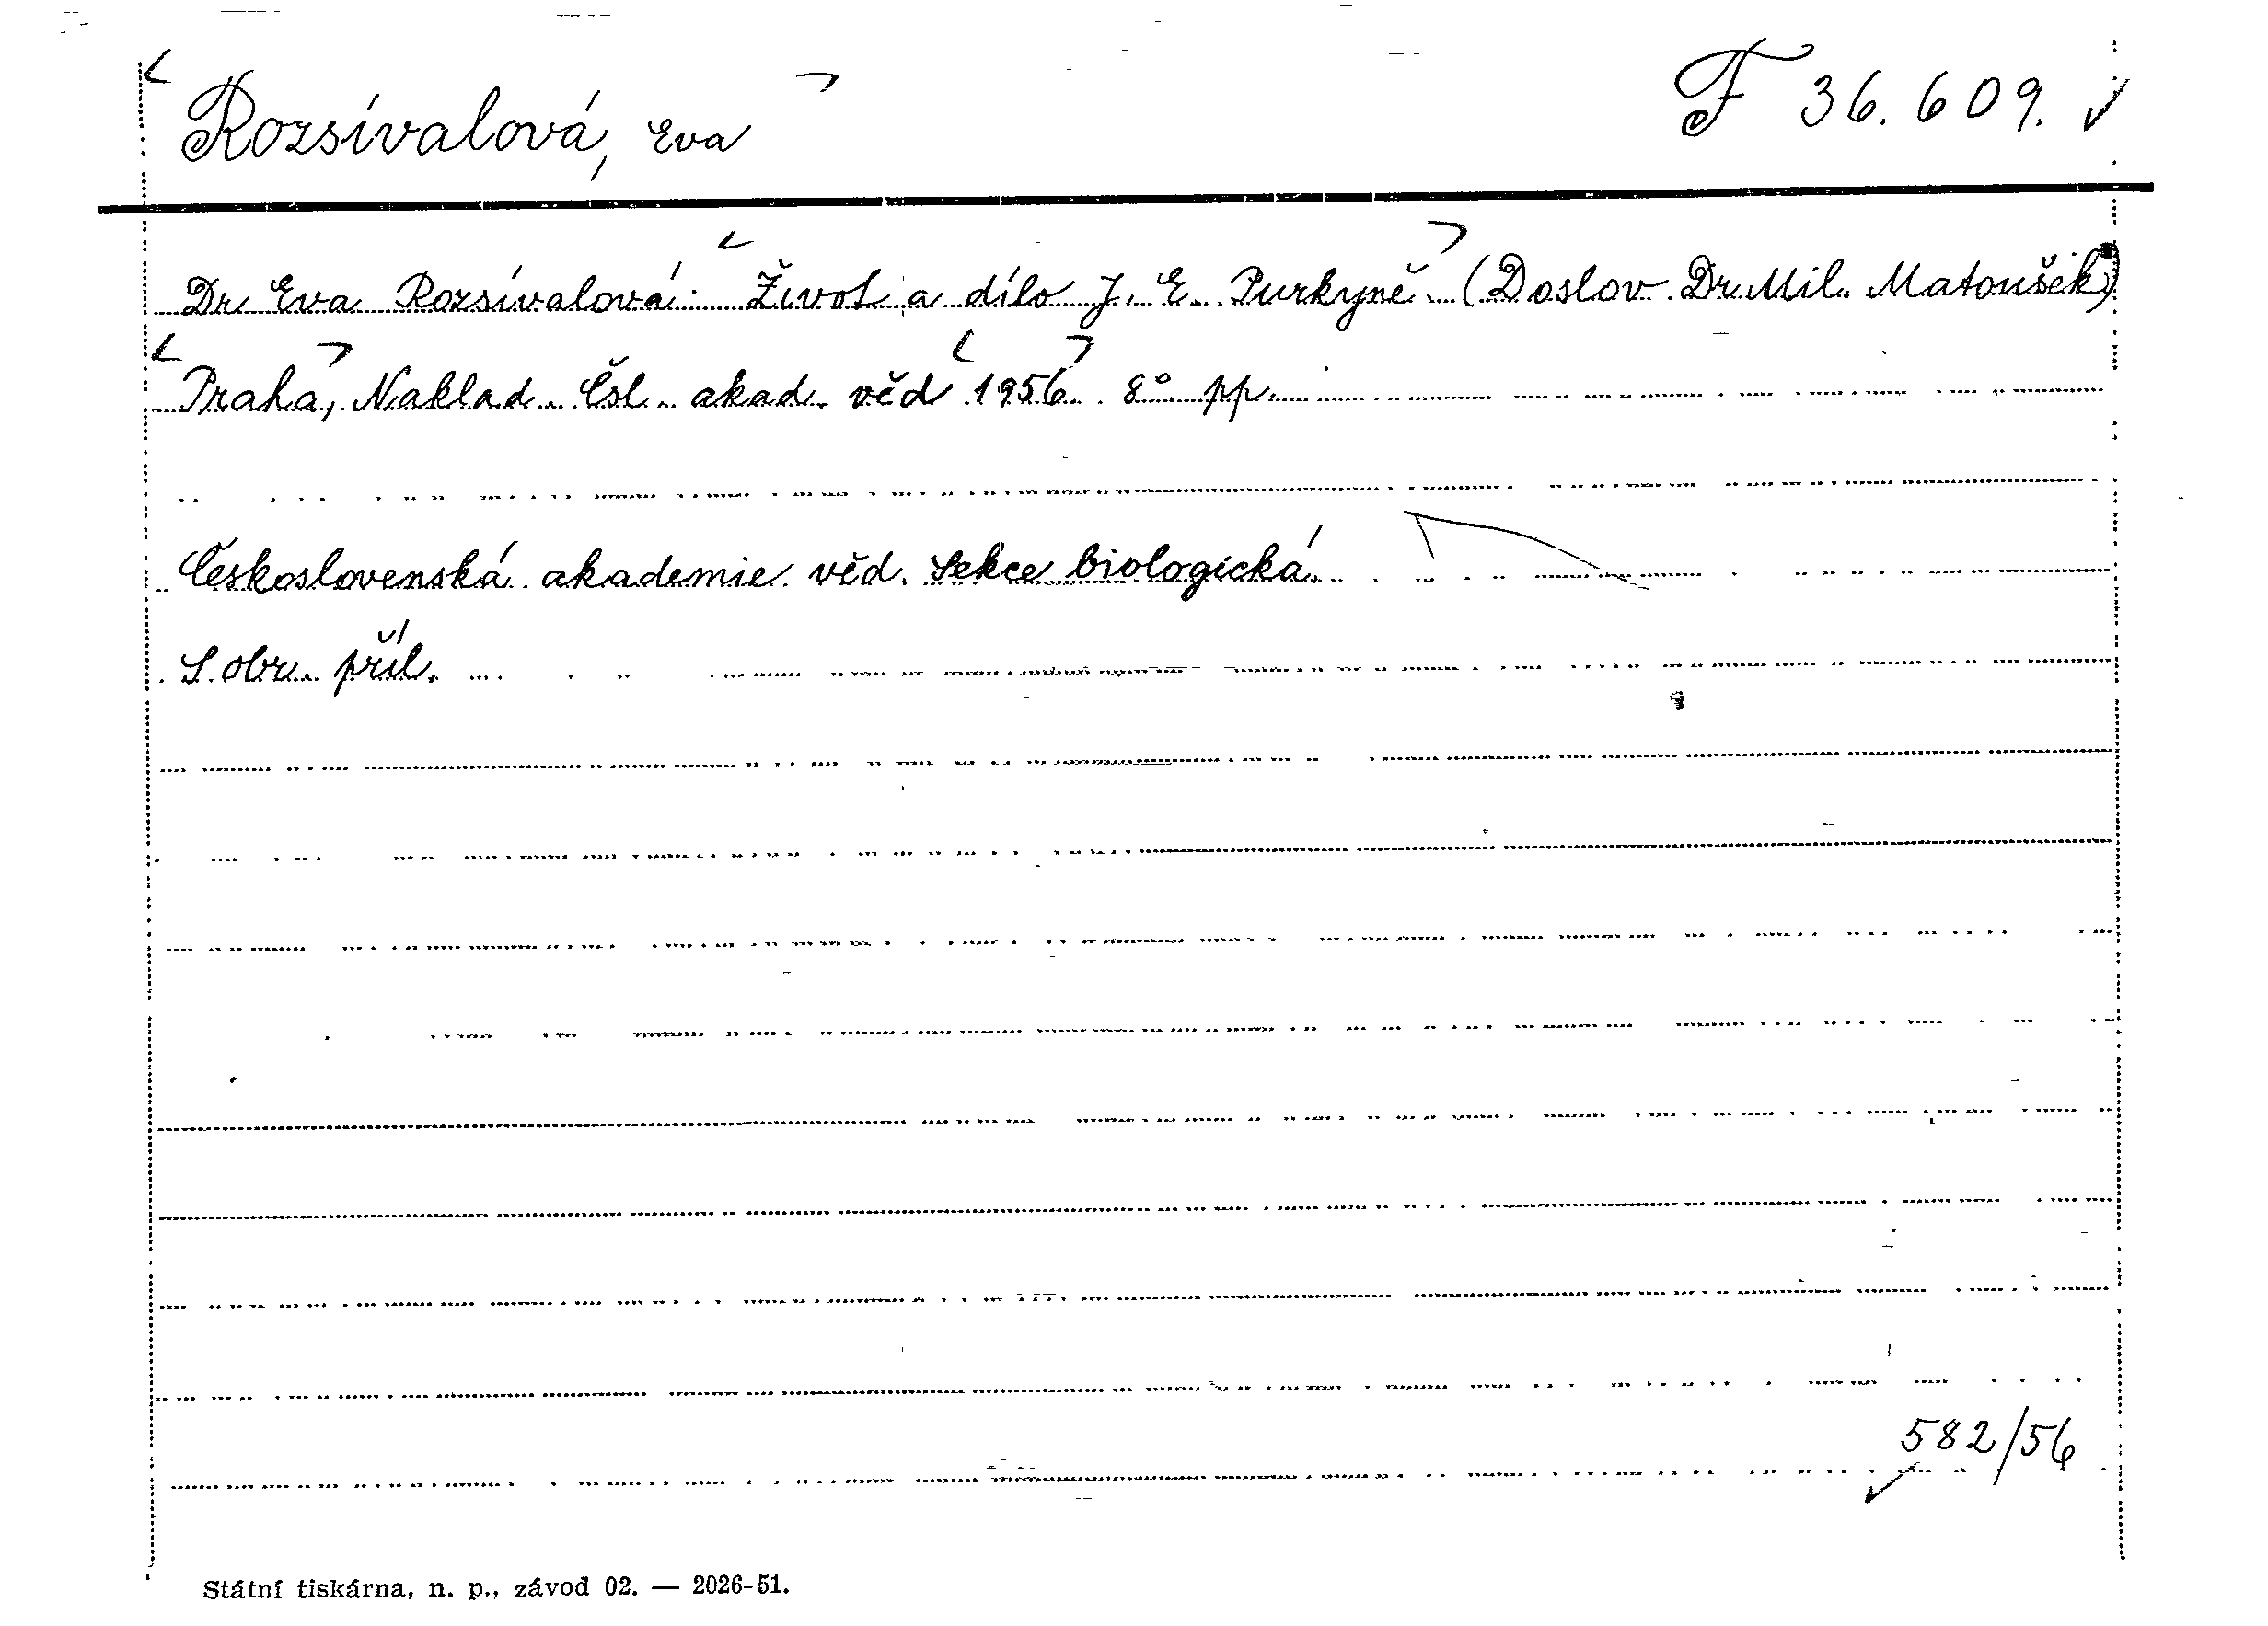 Rozsívalová, Eva F 36.609.
Dr Eva Rozsívalová: Život a dílo J. E. Purkyně. (Doslov Dr Mil. Matoušek)
Praha, Naklad. Čsl. akad. věd 1956. 8° pp.
Československá akademie věd. Sekce biologická.
S obr. příl.
582/56
Státní tiskárna, n. p., závod 02. — 2026-51.